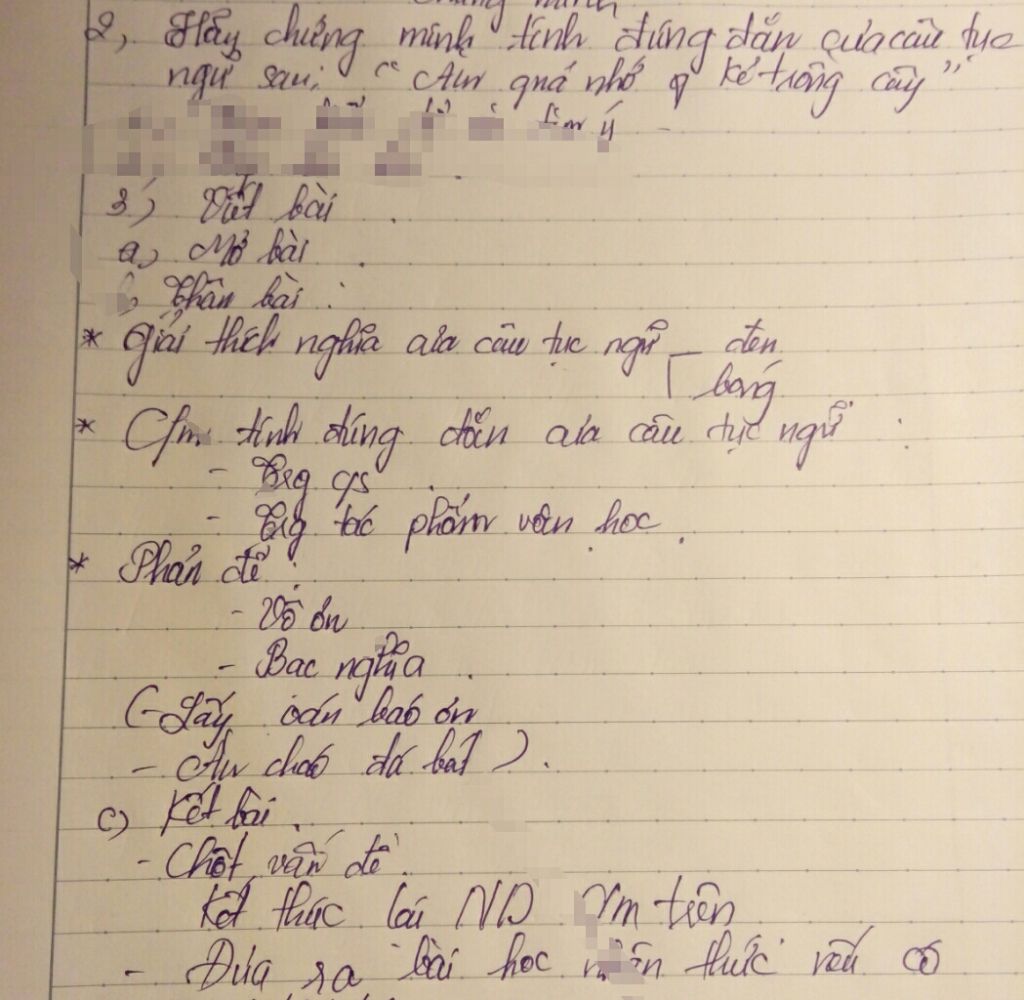 2, Hãy chứng minh tính đúng đắn của câu tục
ngữ sau: "Ăn quả nhớ kẻ trồng cây"
ý
3) Viết bài
a, Mở bài
Thân bài:
* Giải thích nghĩa của câu tục ngữ — đen
bóng
* C/m tính đúng đắn của câu tục ngữ:
- Trg cs
- Trg tác phẩm văn học.
* Phản đề:
- Vô ơn
- Bạc nghĩa.
(- Lấy oán báo ơn
- Ăn cháo đá bát).
c) Kết bài.
- Chốt vấn đề
Kết thúc lại ND trên
- Đưa ra bài học thức